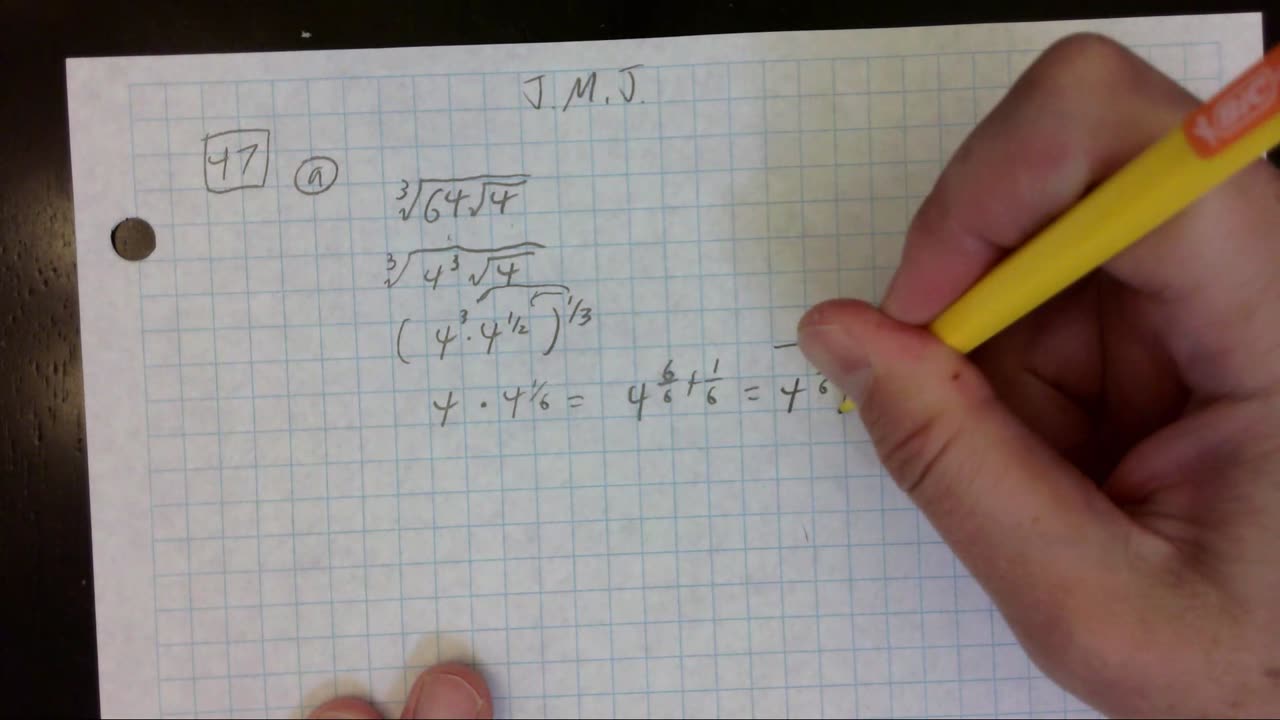 J.M.J.
47 ⓐ ∛(64√4)
∛(4³√4)
(4³·4^1/2)^1/3
4·4^1/6 = 4^(6/6+1/6) = 4
BIC